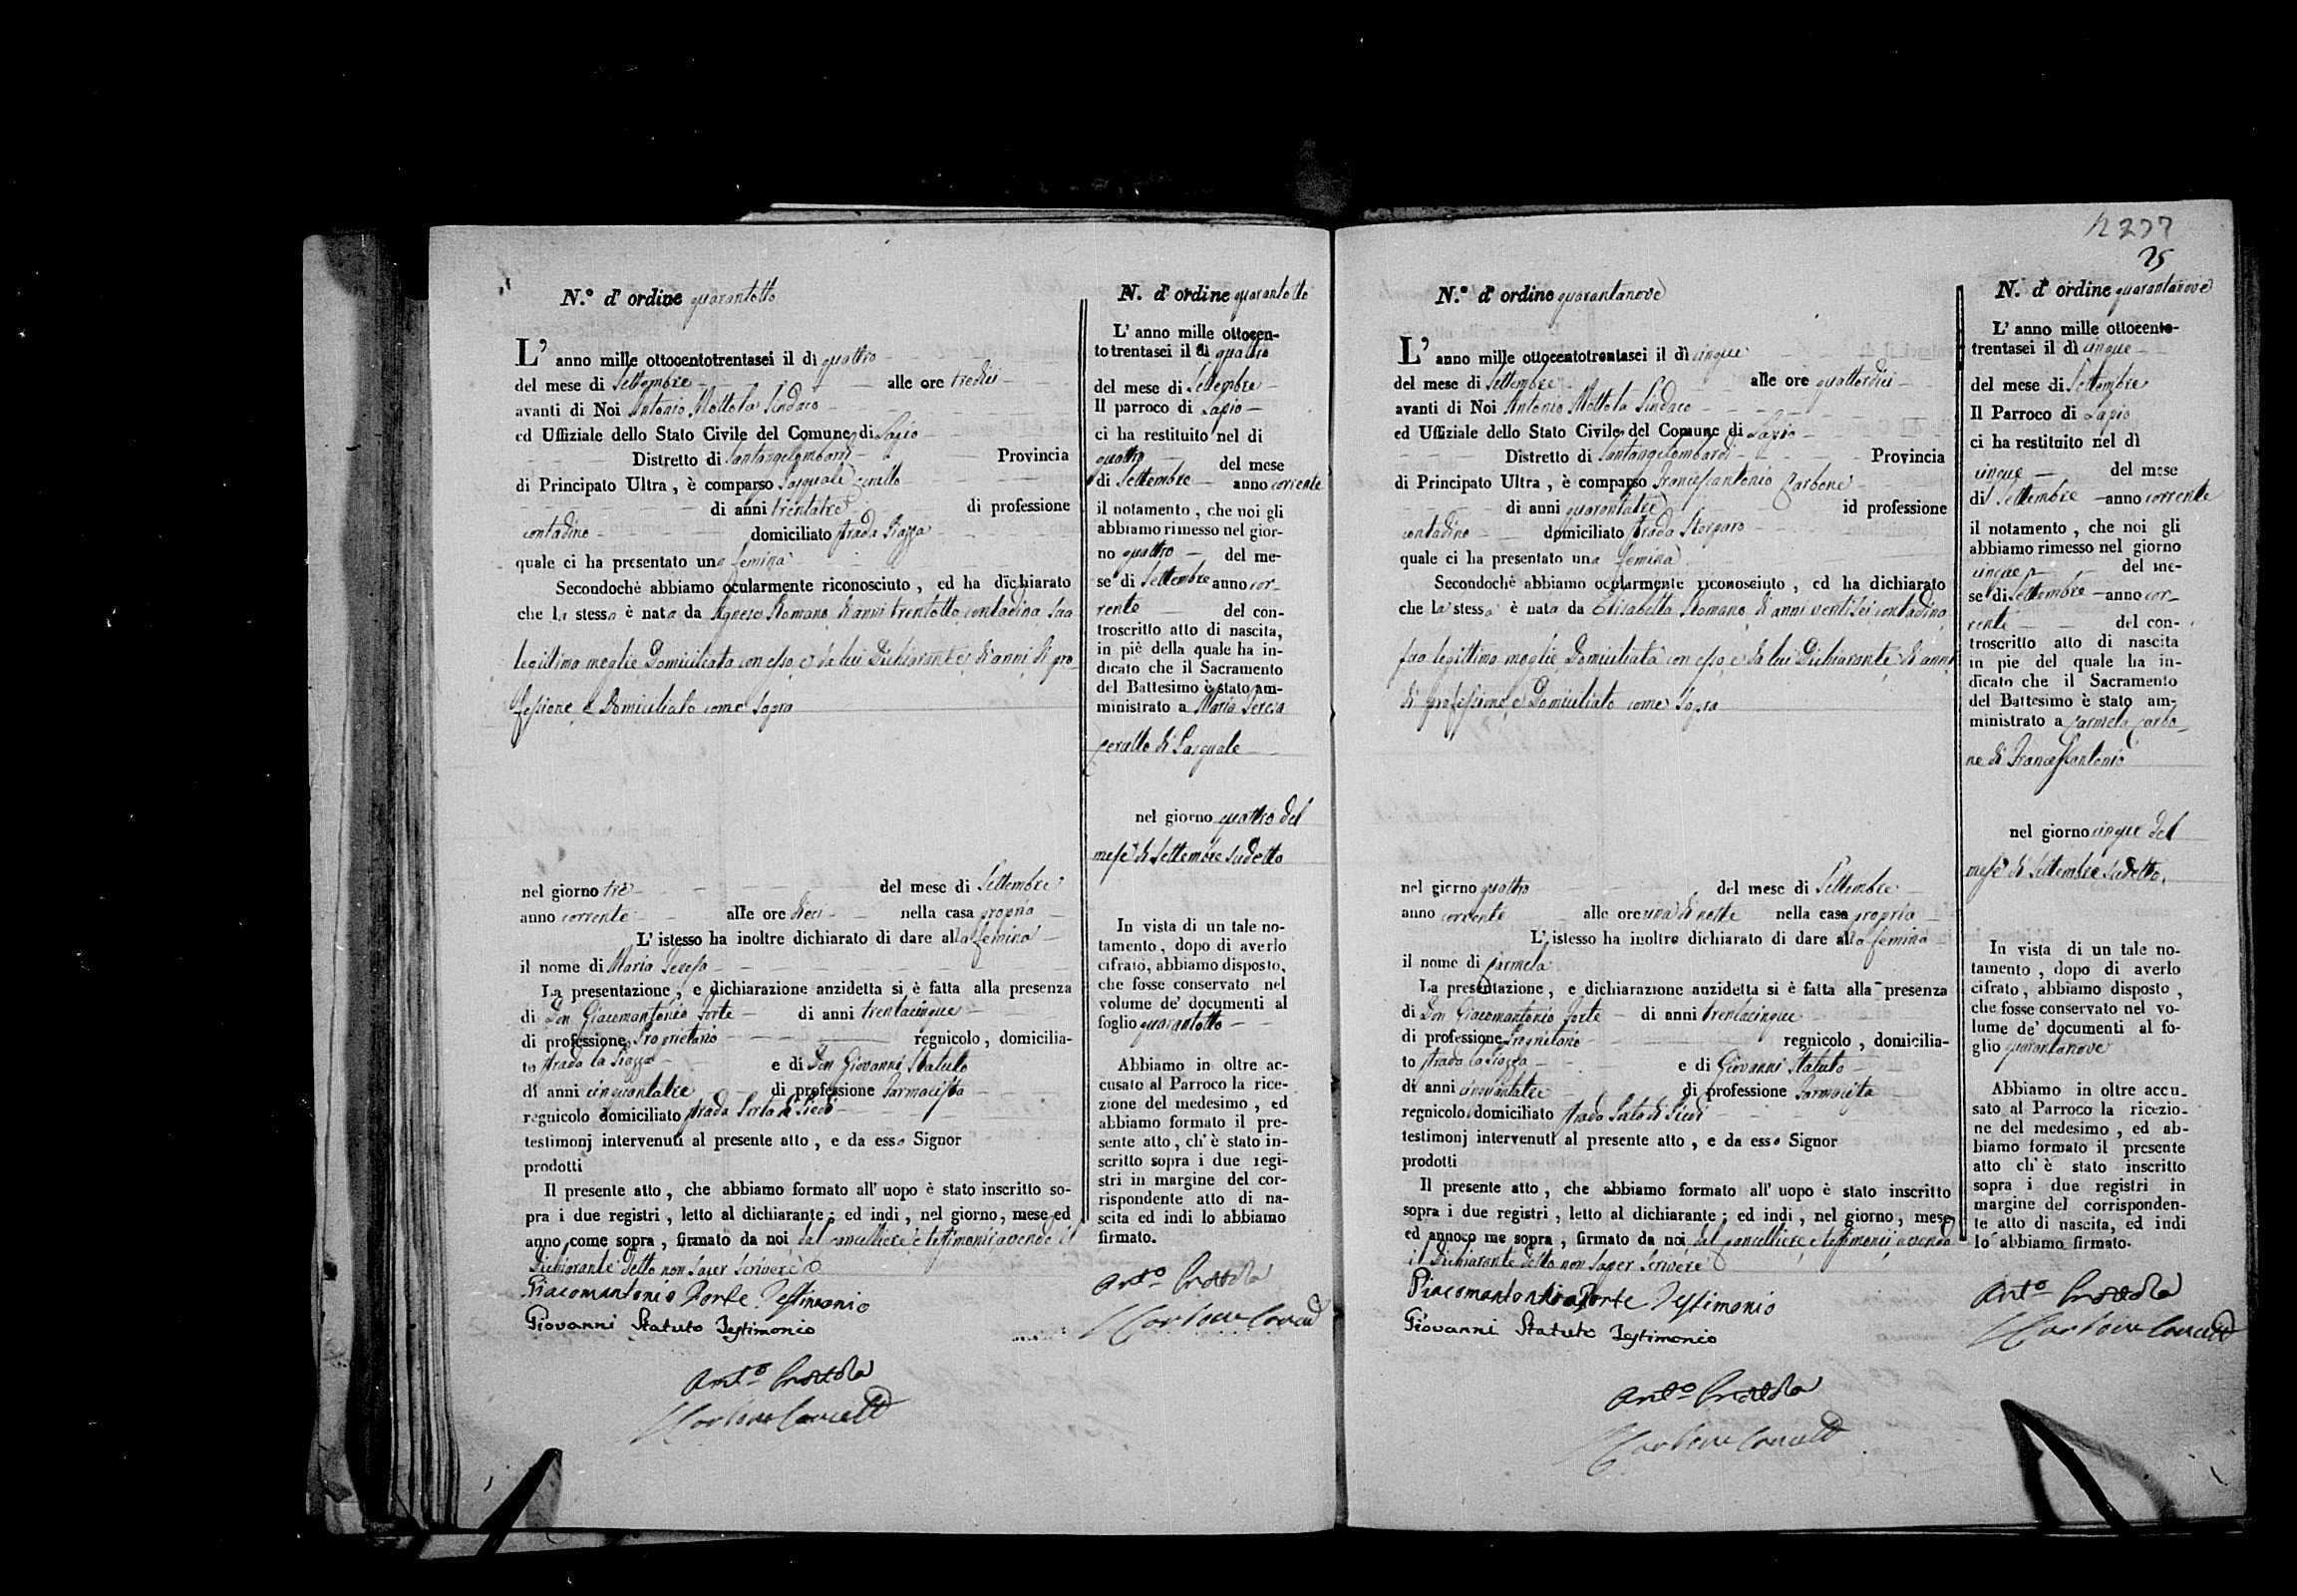 N.º d' ordine quarantotto
L' anno mille ottocentotrentasei il dì quattro
del mese di Settembre alle ore tredici
avanti di Noi Antonio Mottola Sindaco
ed Uffiziale dello Stato Civile del Comune di Lapio
Distretto di Santangelombardi Provincia
di Principato Ultra , è comparso Pasquale Cerullo
di anni trentatre di professione
contadino domiciliato strada Piazza
quale ci ha presentato una femina
Secondochè abbiamo ocularmente riconosciuto , ed ha dichiarato
che la stessa è nata da Agnese Romano di anni trentotto contadina sua
legittima moglie Domiciliata con esso, e da lui Dichiarante di anni di pro
fessione, e Domiciliato come sopra
nel giorno tre del mese di Settembre
anno corrente alle ore dieci nella casa propria
L' istesso ha inoltre dichiarato di dare alla femina
il nome di Maria Teresa
La presentazione , e dichiarazione anzidetta si è fatta alla presenza
di Don Giacomantonio Forte di anni trentacinque
di professione Proprietario regnicolo , domicilia-
to strada la Piazza e di Don Giovanni Statuto
di anni cinquantatre di professione Farmacista
regnicolo domiciliato strada Porta di Piedi
testimonj intervenuti al presente atto , e da esso Signor
prodotti
Il presente atto , che abbiamo formato all' uopo è stato inscritto so-
pra i due registri , letto al dichiarante ; ed indi , nel giorno , mese ed
anno come sopra , firmato da noi dal Cancelliere, e testimonii avendo il
Dichiarante detto non saper scrivere
Giacomantonio Forte Testimonio
Giovanni Statuto Testimonio
Ant.o Mottola
Carbone Cancell
N. d' ordine quarantotto
L' anno mille ottocen-
to trentasei il di quattro
del mese di Settembre
Il parroco di Lapio
ci ha restituito nel di
quattro del mese
di Settembre anno corriente
il notamento , che noi gli
abbiamo rimesso nel gior-
no quattro del me-
se di Settembre anno cor-
rente del con-
troscritto atto di nascita,
in piè della quale ha in-
dicato che il Sacramento
del Battesimo è stato am-
ministrato a Maria Teresa
Cerullo di Pasquale
nel giorno quattro del
mese di Settembre sudetto
In vista di un tale no-
tamento , dopo di averlo
cifrato, abbiamo disposto,
che fosse conservato nel
volume de' documenti al
foglio quarantotto
Abbiamo in oltre ac-
cusato al Parroco la rice-
zione del medesimo , ed
abbiamo formato il pre-
sente atto , ch' è stato in-
scritto sopra i due regi-
stri in margine del cor-
rispondente atto di na-
scita ed indi lo abbiamo
firmato.
Ant.o Mottola
Carbone Cancell
277
25
N.º d' ordine quarantanove
L' anno mille ottocentotrentasei il dì cinque
del mese di Settembre alle ore quattordici
avanti di Noi Antonio Mottola Sindaco
ed Uffiziale dello Stato Civile del Comune di Lapio
Distretto di Santangelombardi Provincia
di Principato Ultra , è comparso Francescantonio Carbone
di anni quarantatre id professione
contadino domiciliato strada
quale ci ha presentato una femina
Secondochè abbiamo ocularmente riconosciuto , ed ha dichiarato
che la stessa è nata da Elisabetta Romano di anni ventisei contadina
sua legittima moglie Domiciliata con esso, e da lui Dichiarante di anni
di professione, e Domiciliato come sopra
nel giorno quattro del mese di Settembre
anno corrente alle ore una di notte nella casa propria
L' istesso ha inoltre dichiarato di dare alla femina
il nome di Carmela
La presentazione , e dichiarazione anzidetta si è fatta alla presenza
di Don Giacomantonio Forte di anni trentacinque
di professione Proprietario regnicolo , domicilia-
to strada la Piazza e di Giovanni Statuto
di anni cinquantatre di professione Farmacista
regnicolo domiciliato strada Porta di Piedi
testimonj intervenuti al presente atto , e da esso Signor
prodotti
Il presente atto , che abbiamo formato all' uopo è stato inscritto
sopra i due registri , letto al dichiarante ; ed indi , nel giorno , mese
ed annoco me sopra , firmato da noi dal Cancelliere, e testimonii avendo
il Dichiarante detto non saper scrivere
Giacomantonio Forte Testimonio
Giovanni Statuto Testimonio
Ant.o Mottola
Carbone Cancell
N. d' ordine quarantanove
L' anno mille ottocento-
trentasei il dì cinque
del mese di Settembre
Il Parroco di Lapio
ci ha restituito nel dì
cinque del mese
di Settembre anno corrente
il notamento , che noi gli
abbiamo rimesso nel giorno
cinque del me-
se di Settembre anno cor-
rente del con-
troscritto atto di nascita
in pie del quale ha in-
dicato che il Sacramento
del Battesimo è stato am-
ministrato a Carmela Carbo-
ne di Francescantonio
nel giorno cinque del
mese di Settembre sudetto.
In vista di un tale no-
tamento , dopo di averlo
cifrato , abbiamo disposto ,
che fosse conservato nel vo-
lume de' documenti al fo-
glio quarantanove
Abbiamo in oltre accu-
sato al Parroco la ricezio-
ne del medesimo , ed ab-
biamo formato il presente
atto ch' è stato inscritto
sopra i due registri in
margine del corrisponden-
te atto di nascita, ed indi
lo abbiamo firmato.
Ant.o Mottola
Carbone Cancell